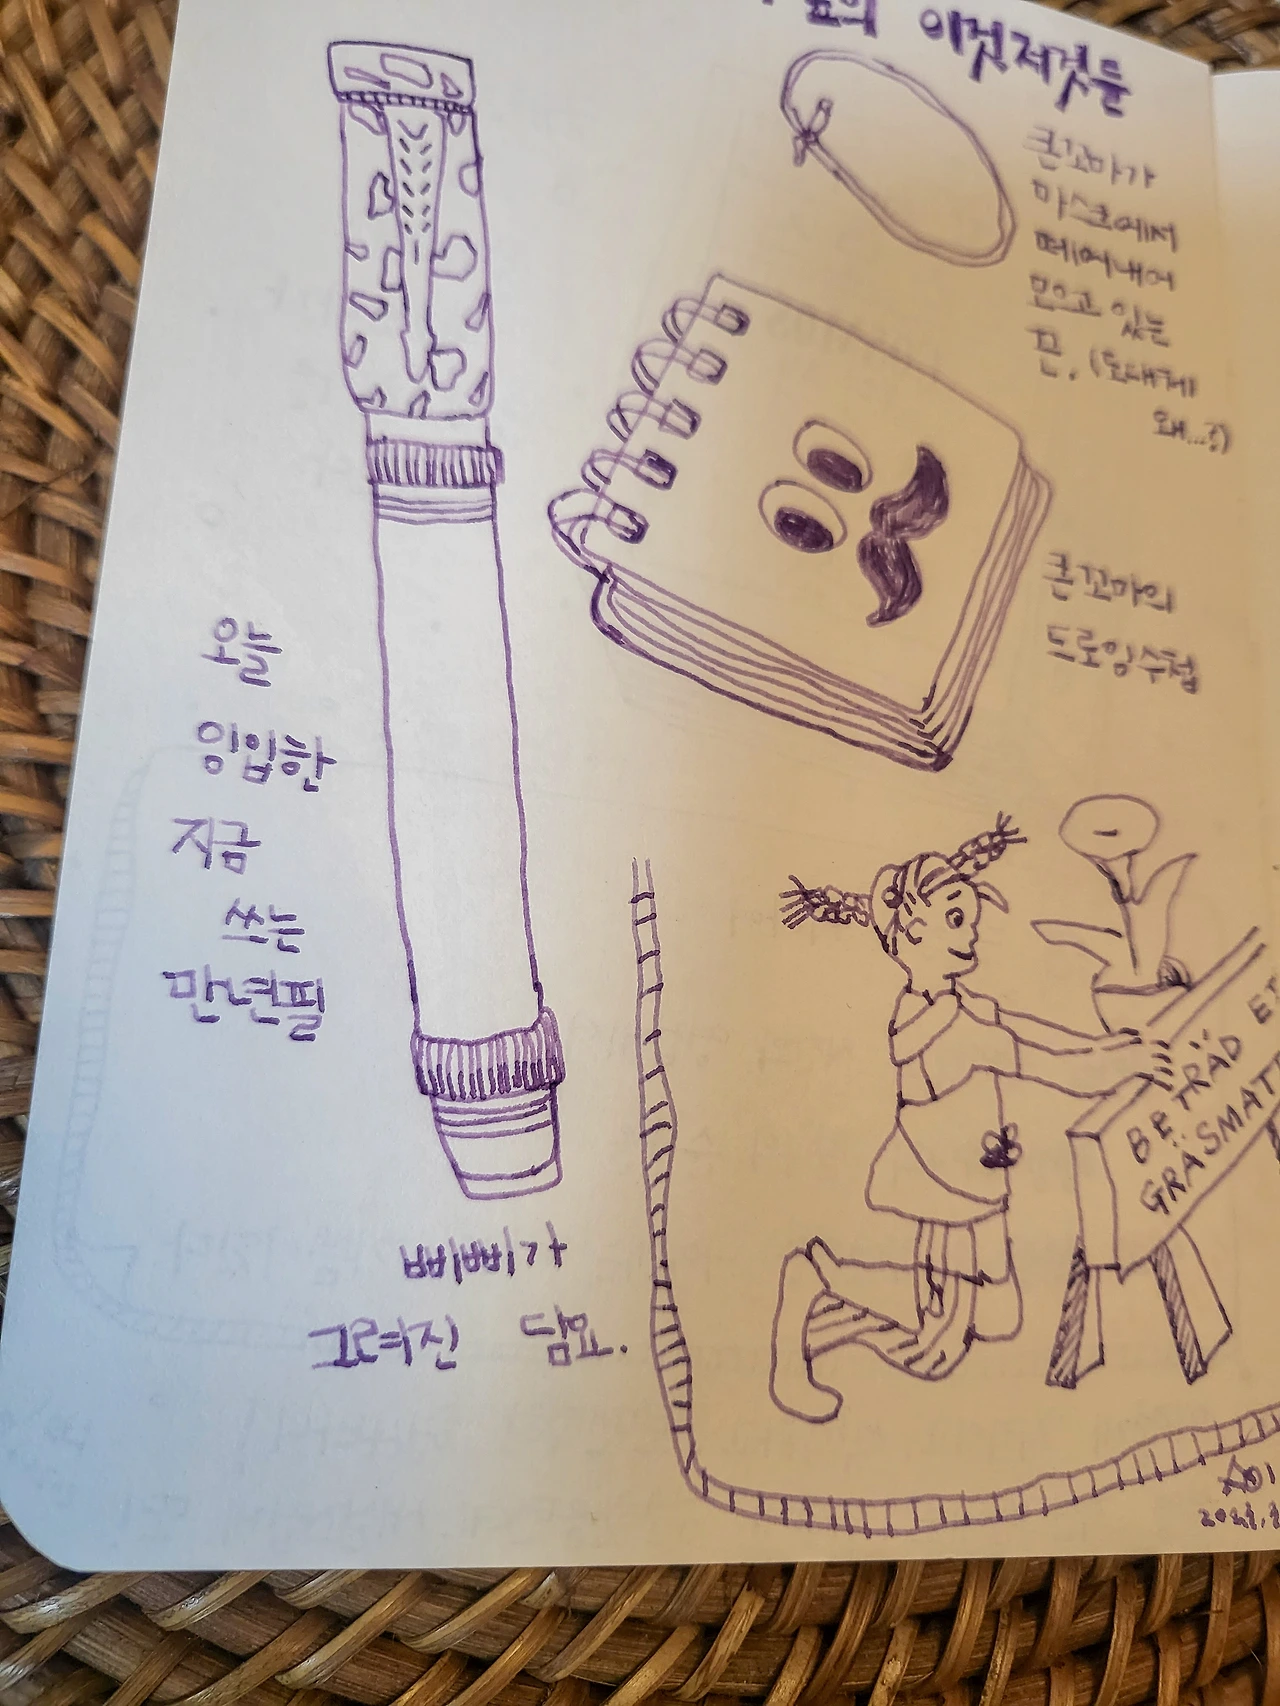 의 이것저것들
큰꼬마가
마스크에서
떼어내어
모으고 있는
끈. (도대체
왜...?)
큰꼬마의
드로잉수첩
오늘
잉입한
지금
쓰는
만년필
삐삐가
그려진 담요.
BETRÄD EJ
GRÄSMAT